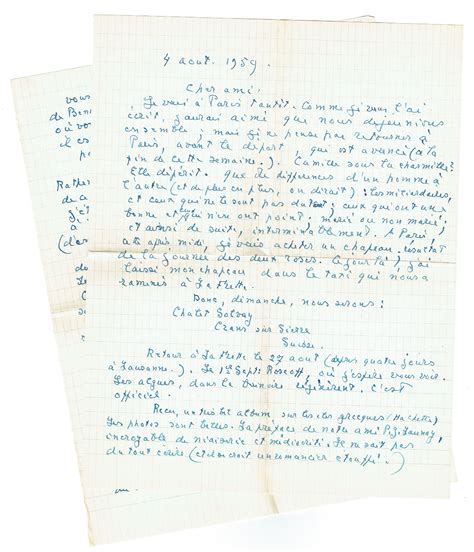 4 août. 1959.
Cher ami,
Je vais à Paris tantôt. Comme je vous l'ai
écrit, j'aurais aimé que nous déjeunions
ensemble ; mais je ne pense pas retourner à
Paris, avant le départ, qui est avancé (à la
fin de cette semaine.). Camille sous la charmille :
Elle dépérit. que de différences d'un homme à
l'autre (et de plus en plus, on dirait) : les
et ceux qui ne le sont pas du tout ; ceux qui ont une
bonne et qui n'en ont point ; marié ou non marié ;
et ainsi de suite, interminablement. A Paris,
cet après midi, je vais acheter un chapeau. résultat
de la journée des deux roses. (ce jour là, j'ai
laissé mon chapeau dans le taxi qui nous a
ramenés à La Frette.
Donc, dimanche, nous serons :
Chalet Solvay
Crans sur Sierre
Suisse.
Retour à La Frette le 27 août (après quatre jours
à Lausanne.). Le 1er Sept : Roscoff, où j'espère vous voir.
Les algues, dans le régénèrent. C'est
officiel.
Reçu, un très bel album sur les îles grecques (Hachette)
Les photos sont belles. La préface de notre ami P.J. Launay,
incroyable de niaiserie et médiocrité. Il ne sait pas
du tout écrire (et on croit un romancier étouffé !.)
vous
de
où vo
il es
p
de a
j'e
à
(d'o
d